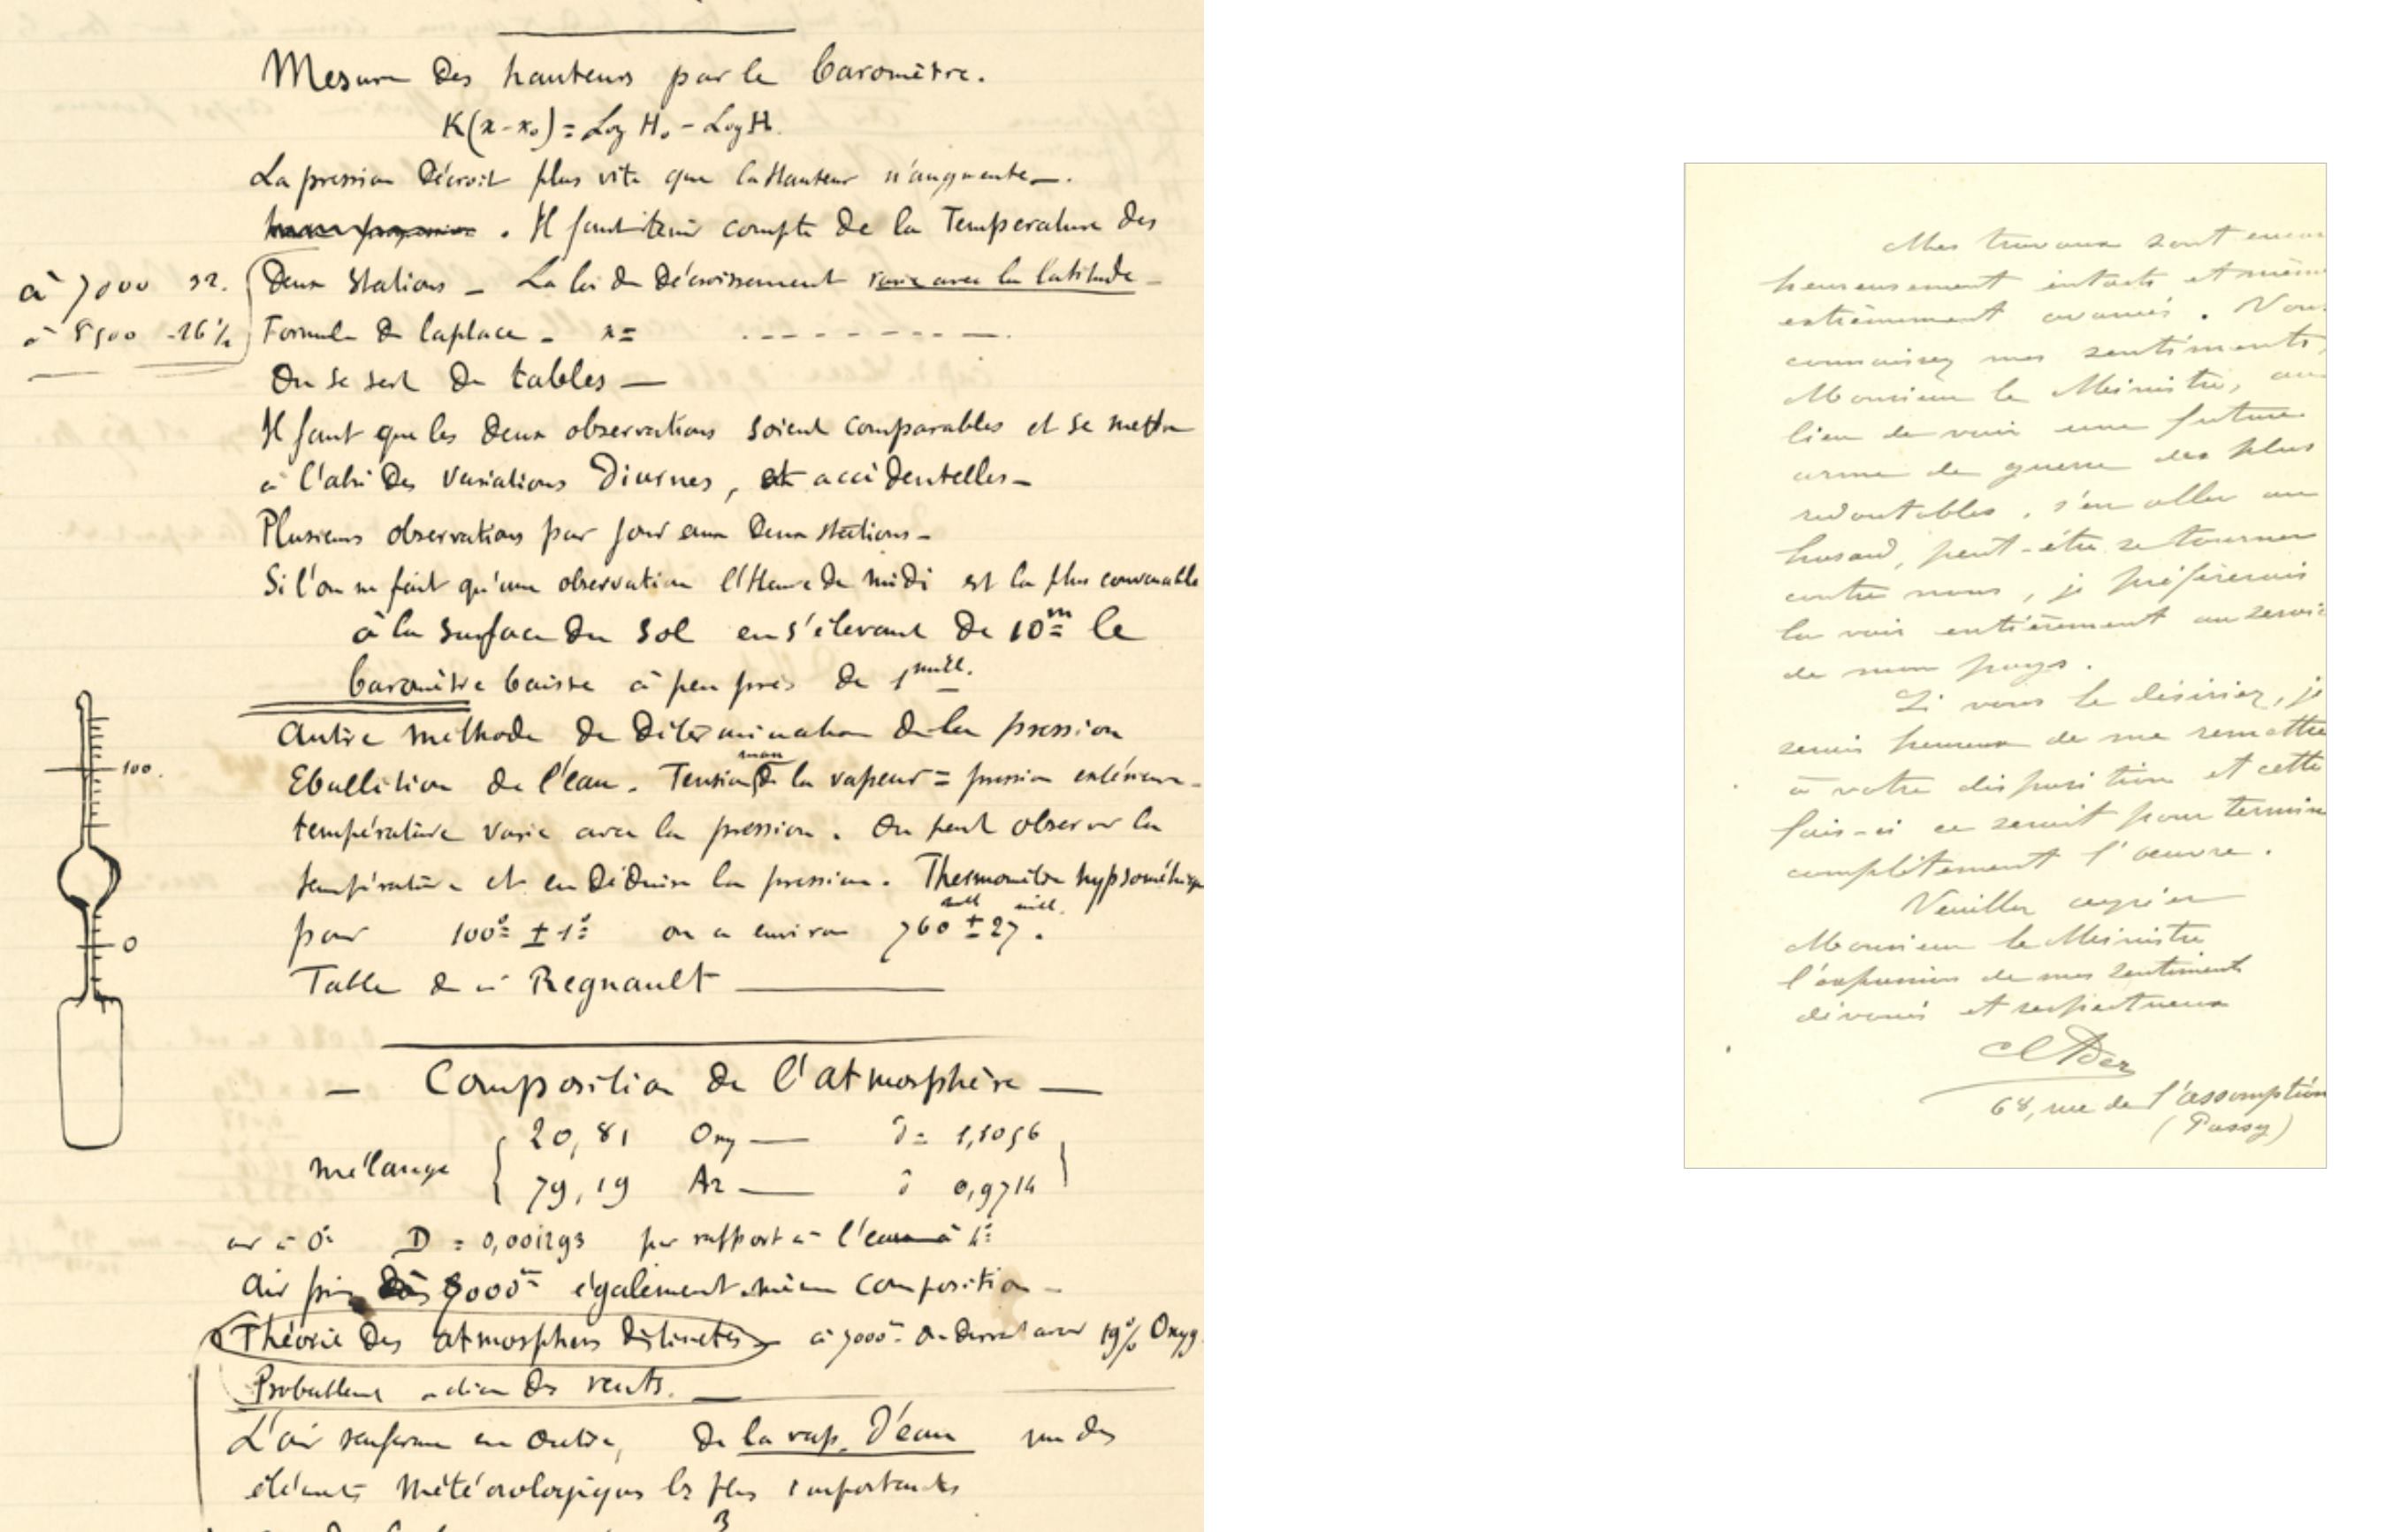 Mesure des hauteurs par le baromètre.
K(x-x₀) = Log H₀ - Log H.
La pression décroit plus vite que la Hauteur n'augmente.
. Il faut tenir compte de la Température des
deux stations – La loi de décroissement varie avec la latitude –
à 7000 32.
à 8500 -26%
Formule de laplace – x =
On se sert de tables —
Il faut que les deux observations soient comparables et se mettre
à l'abri des variations diurnes, et accidentelles –
Plusieurs observations par jour aux deux stations –
Si l'on ne fait qu'une observation l'Heure de midi est la plus convenable
à la surface du sol en s'élevant de 10m le
baromètre baisse à peu près de 1 mill.
Autre méthode de détermination de la pression
Ebullition de l'eau. Tension max de la vapeur = pression extérieure –
température varie avec la pression. On peut observer la
température et en déduire la pression. Thermomètre hypsométrique
100.
0
pour 100° ± 1° on a environ 760 mill ± 27 mill.
Table de Regnault
– Composition de l'atmosphère —
mélange { 20,81 Oxy — δ = 1,1056
79,19 Az — δ 0,9714 }
air à 0° D = 0,001293 par rapport à l'eau à 4°
Air pris 8000m également même composition –
Théorie des atmosphères distinctes à 7000m on devrait avoir 19% Oxyg.
Probablement action des vents. —
L'air renferme en outre, de la vap. d'eau un des
éléments météorologiques les plus importants
3
Mes travaux sont encor
heureusement intacts et même
extrêmement avancés. Vous
connaissez mes sentiments,
Monsieur le Ministre, au
lieu de voir une future
arme de guerre des plus
redoutables, s'en aller au
hasard, peut-être se tourner
contre nous, je préfèrerais
la voir entièrement au servic
de mon pays.
Si vous le désiriez, je
serais heureux de me remettre
à votre disposition et cette
fois-ci ce serait pour termin
complètement l'œuvre.
Veuillez agréer
Monsieur le Ministre
l'expression de mes sentiments
dévoués et respectueux
C Ader
68, rue de l'assomption
(Passy)